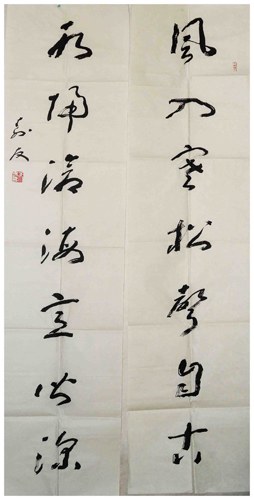 風入寒松聲自古
水歸滄海意皆深